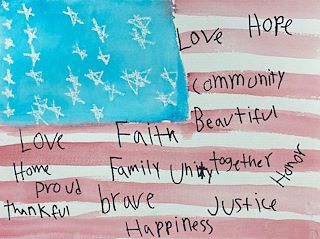 Love Hope
Community
Beautiful
Love Faith
Home Family Unity together Honor
Proud
thankful brave Justice
Happiness